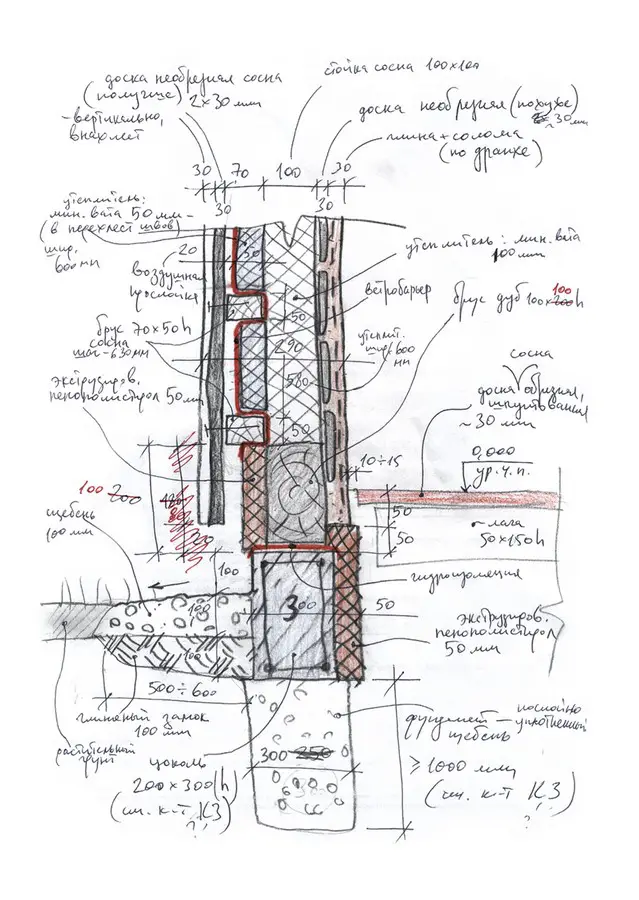 доска необрезная сосна
(получше) 2х30 мм
-вертикально,
внахлест
стойка сосна 100х100
доска необрезная (похуже)
~30 мм
глина+солома
(по дранке)
30 70 100 30
30 30
утеплитель:
мин. вата 50 мм-
(в перехлест швов)
шир.
600 мм
50
20
воздушная
прослойка
утеплитель: мин. вата
100 мм
ветробарьер
брус дуб 100х200h
100
50
брус 70х50h
сосна
шаг-630мм
290
утеплит.
шир. 600
мм
580
экструзиров.
пенополистирол 50мм
50
сосна
доска обрезная,
шпунтованная
~30 мм
0,000
ур.ч.п.
10÷15
100 200
щебень
100 мм
50
50
~лага
50х150h
100
гидроизоляция
100
3
300
50
экструзиров.
пенополистирол
50 мм
100
500÷600
глиняный замок
100 мм
растительный
грунт
цоколь
200х300(h)
(см. к-т КЗ)
?
300 250
фундамент — послойно
уплотненный
щебень
≥1000 мм
(см. к-т КЗ)
?